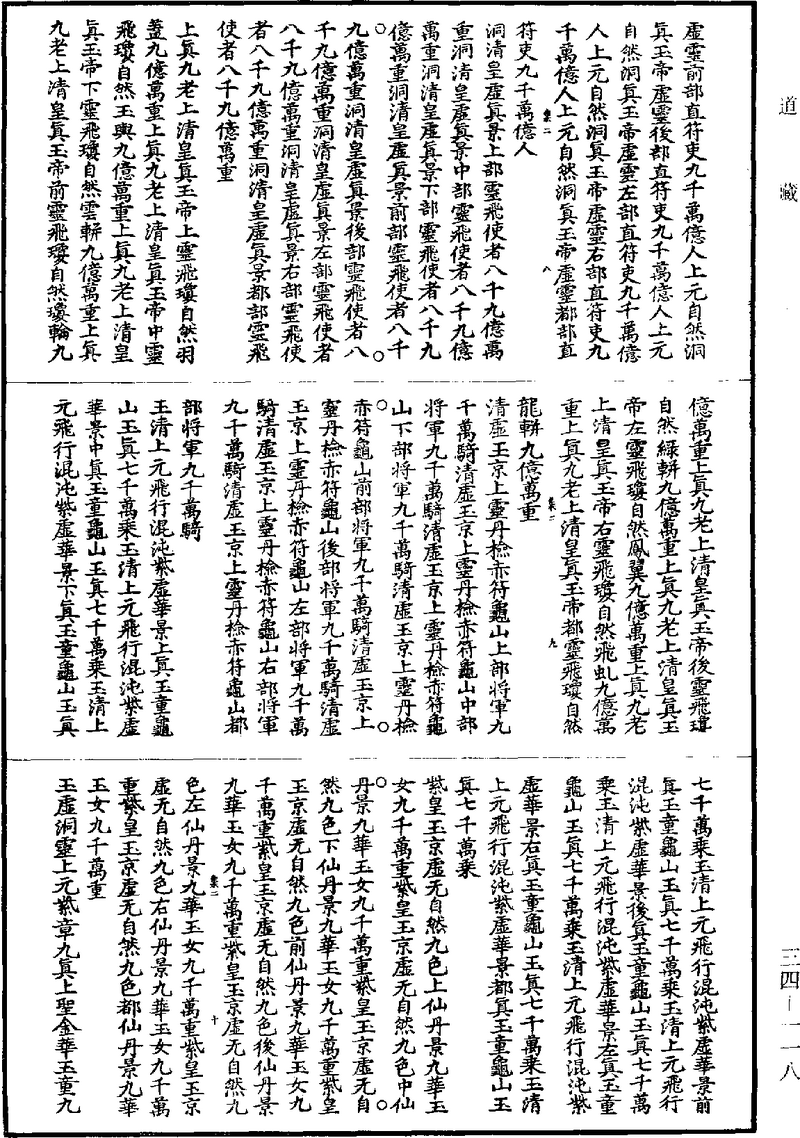 道藏
虛靈前部直符吏九千萬億人上元自然洞
眞玉帝虛靈後部直符吏九千萬億人上元
自然洞眞玉帝虛靈左部直符吏九千萬億
人上元自然洞眞玉帝虛靈右部直符吏九
千萬億人上元自然洞眞玉帝虛靈都部直
符吏九千萬億人
洞清皇虛眞景上部靈飛使者八千九億萬
重洞清皇虛眞景中部靈飛使者八千九億
萬重洞清皇虛眞景下部靈飛使者八千九
億萬重洞清皇虛眞景前部靈飛使者八千
九億萬重洞清皇虛眞景後部靈飛使者八
千九億萬重洞清皇虛眞景左部靈飛使者
八千九億萬重洞清皇虛眞景右部靈飛使
者八千九億萬重洞清皇虛眞景都部靈飛
使者八千九億萬重
上眞九老上清皇眞玉帝上靈飛瓊自然羽
蓋九億萬重上眞九老上清皇眞玉帝中靈
飛瓊自然玉輿九億萬重上眞九老上清皇
眞玉帝下靈飛瓊自然雲軿九億萬重上眞
九老上清皇眞玉帝前靈飛瓊自然瓊輪九
億萬重上眞九老上清皇眞玉帝後靈飛瓊
自然綠軿九億萬重上眞九老上清皇眞玉
帝左靈飛瓊自然鳳翼九億萬重上眞九老
上清皇眞玉帝右靈飛瓊自然飛虬九億萬
重上眞九老上清皇眞玉帝都靈飛瓊自然
龍軿九億萬重
清虛玉京上靈丹檢赤符龜山上部將軍九
千萬騎清虛玉京上靈丹檢赤符龜山中部
將軍九千萬騎清虛玉京上靈丹檢赤符龜
山下部將軍九千萬騎清虛玉京上靈丹檢
赤符龜山前部將軍九千萬騎清虛玉京上
靈丹檢赤符龜山後部將軍九千萬騎清虛
玉京上靈丹檢赤符龜山左部將軍九千萬
騎清虛玉京上靈丹檢赤符龜山右部將軍
九千萬騎清虛玉京上靈丹檢赤符龜山都
部將軍九千萬騎
玉清上元飛行混沌紫虛華景上眞玉童龜
山玉眞七千萬乘玉清上元飛行混沌紫虛
華景中眞玉童龜山玉眞七千萬乘玉清上
元飛行混沌紫虛華景下眞玉童龜山玉眞
七千萬乘玉清上元飛行混沌紫虛華景前
眞玉童龜山玉眞七千萬乘玉清上元飛行
混沌紫虛華景後眞玉童龜山玉眞七千萬
乘玉清上元飛行混沌紫虛華景左眞玉童
龜山玉眞七千萬乘玉清上元飛行混沌紫
虛華景右眞玉童龜山玉眞七千萬乘玉清
上元飛行混沌紫虛華景都眞玉童龜山玉
眞七千萬乘
紫皇玉京虛无自然九色上仙丹景九華玉
女九千萬重紫皇玉京虛无自然九色中仙
丹景九華玉女九千萬重紫皇玉京虛无自
然九色下仙丹景九華玉女九千萬重紫皇
玉京虛无自然九色前仙丹景九華玉女九
千萬重紫皇玉京虛无自然九色後仙丹景
九華玉女九千萬重紫皇玉京虛无自然九
色左仙丹景九華玉女九千萬重紫皇玉京
虛无自然九色右仙丹景九華玉女九千萬
重紫皇玉京虛无自然九色都仙丹景九華
玉女九千萬重
玉虛洞靈上元紫章九眞上聖金華玉童九
三四－一一八